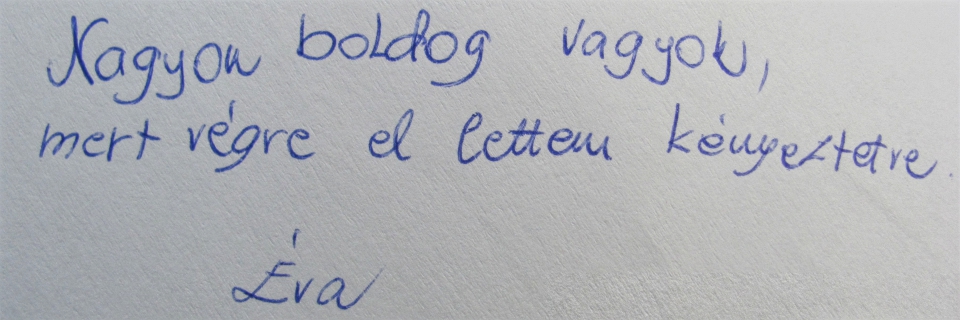 Nagyon boldog vagyok,
mert végre el lettem kényeztetve.
Éva